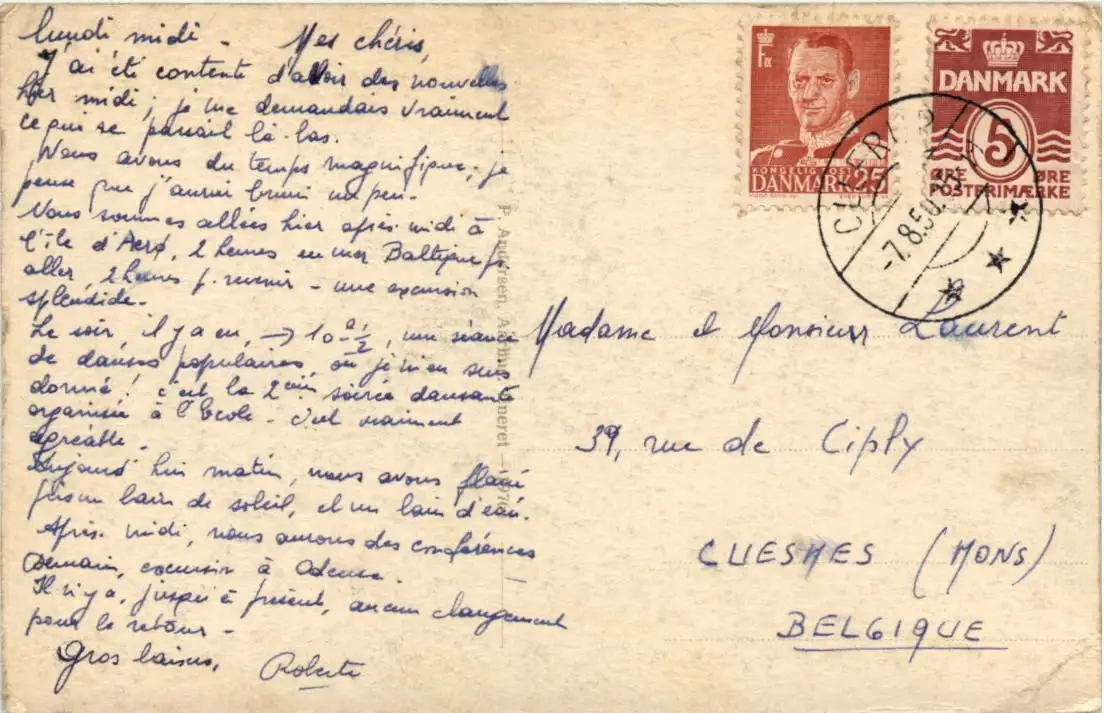 lundi midi - Mes chéris,
J'ai été contente d'avoir des nouvelles
hier midi; je me demandais vraiment
ce qui se passait là-bas.
Nous avons du temps magnifique; je
pense que j'aurai bruni un peu.
Nous sommes allées hier après-midi à
l'île d'Aerø, 2 heures en mer Baltique p.
aller, 2 heures p. revenir - une excursion
splendide.
Le soir il y a eu, → 10 h 1/2, une séance
de danses populaires, où je m'en suis
donné! c'est la 2ème soirée dansante
organisée à l'Ecole - c'est vraiment
agréable.
Aujourd'hui matin, nous avons flané
pris un bain de soleil, et un bain d'eau.
Après-midi, nous aurons des conférences
Demain, excursion à Odense.
Il n'y a, jusqu'à présent, aucun changement
pour le retour -
Gros baisers, Roberte
P. Andersen, Agneret
DANMARK
KONGELIG POST
DANMARK 25
DANMARK
5
ØRE ØRE
POSTFRIMÆRKE
-7.8.50.
Madame et Monsieur Laurent
39, rue de Ciply
CUESMES (MONS)
BELGIQUE